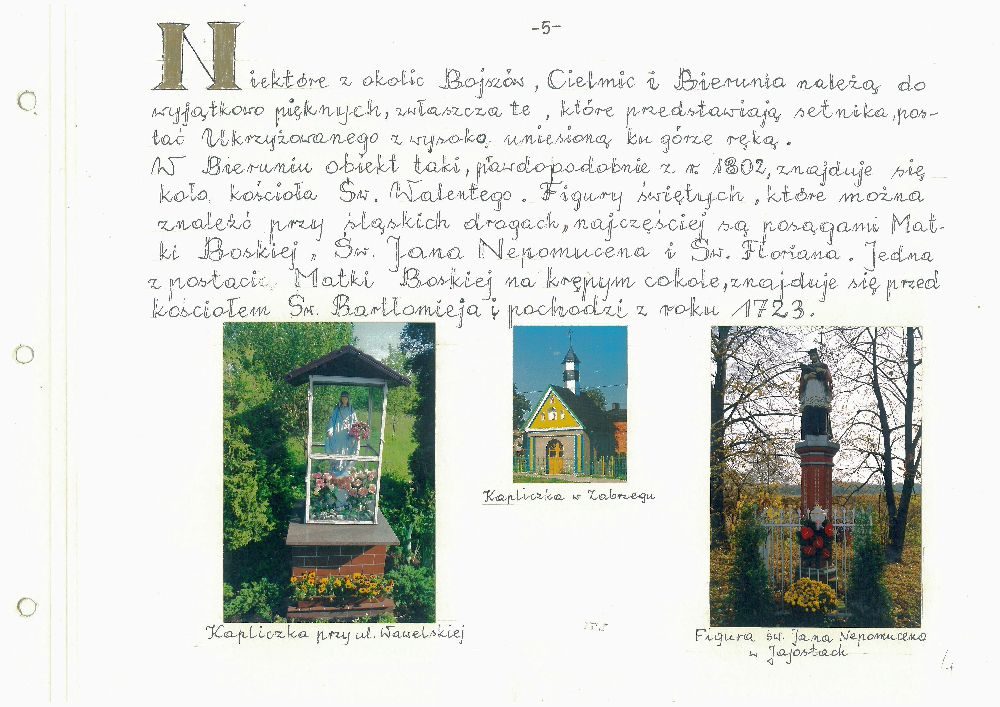 -5-
Niektóre z okolic Bojszów, Cielmic i Bierunia należą do
wyjątkowo pięknych, zwłaszcza te, które przedstawiają setnika, pos-
tać Ukrzyżowanego z wysoko uniesioną ku górze ręką.
W Bieruniu obiekt taki, prawdopodobnie z r. 1802, znajduje się
koło kościoła Św. Walentego. Figury świętych, które można
znaleźć przy śląskich drogach, najczęściej są posągami Mat-
ki Boskiej, Św. Jana Nepomucena i Św. Floriana. Jedna
z postacią Matki Boskiej na krępym cokole, znajduje się przed
kościołem Św. Bartłomieja i pochodzi z roku 1723.
Kapliczka w Zabrzegu
Kapliczka przy ul. Wawelskiej
Figura św. Jana Nepomucena
w Jajostach